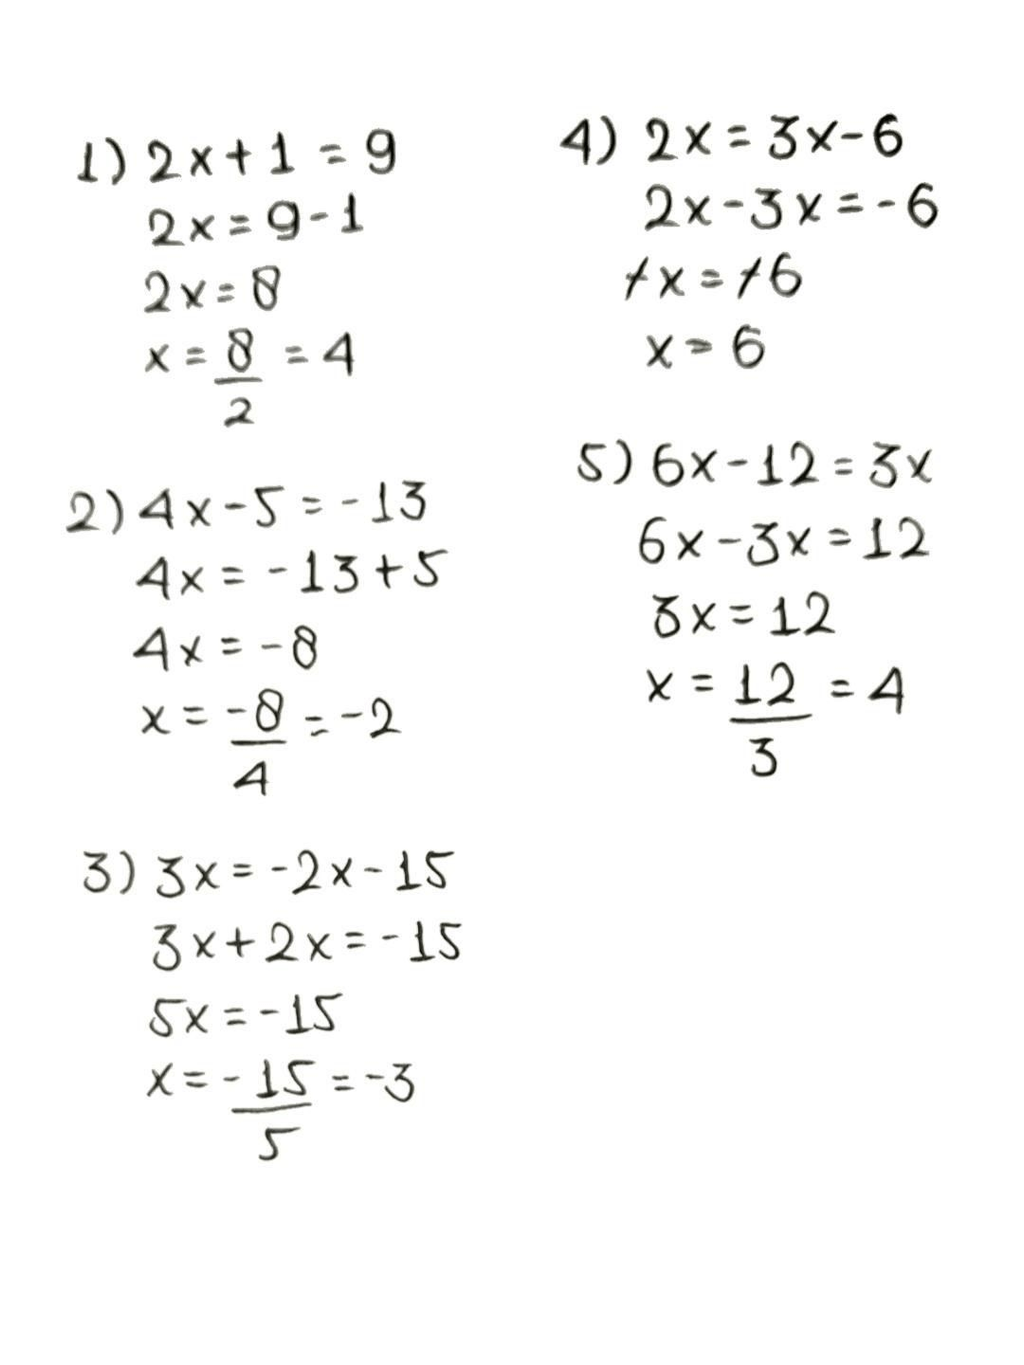 1) 2x+1 = 9
2x = 9-1
2x = 8
x = 8/2 = 4
2) 4x-5 = -13
4x = -13+5
4x = -8
x = -8/4 = -2
3) 3x = -2x-15
3x+2x = -15
5x = -15
x = -15/5 = -3
4) 2x = 3x-6
2x-3x = -6
-x = -6
x = 6
5) 6x-12 = 3x
6x-3x = 12
3x = 12
x = 12/3 = 4